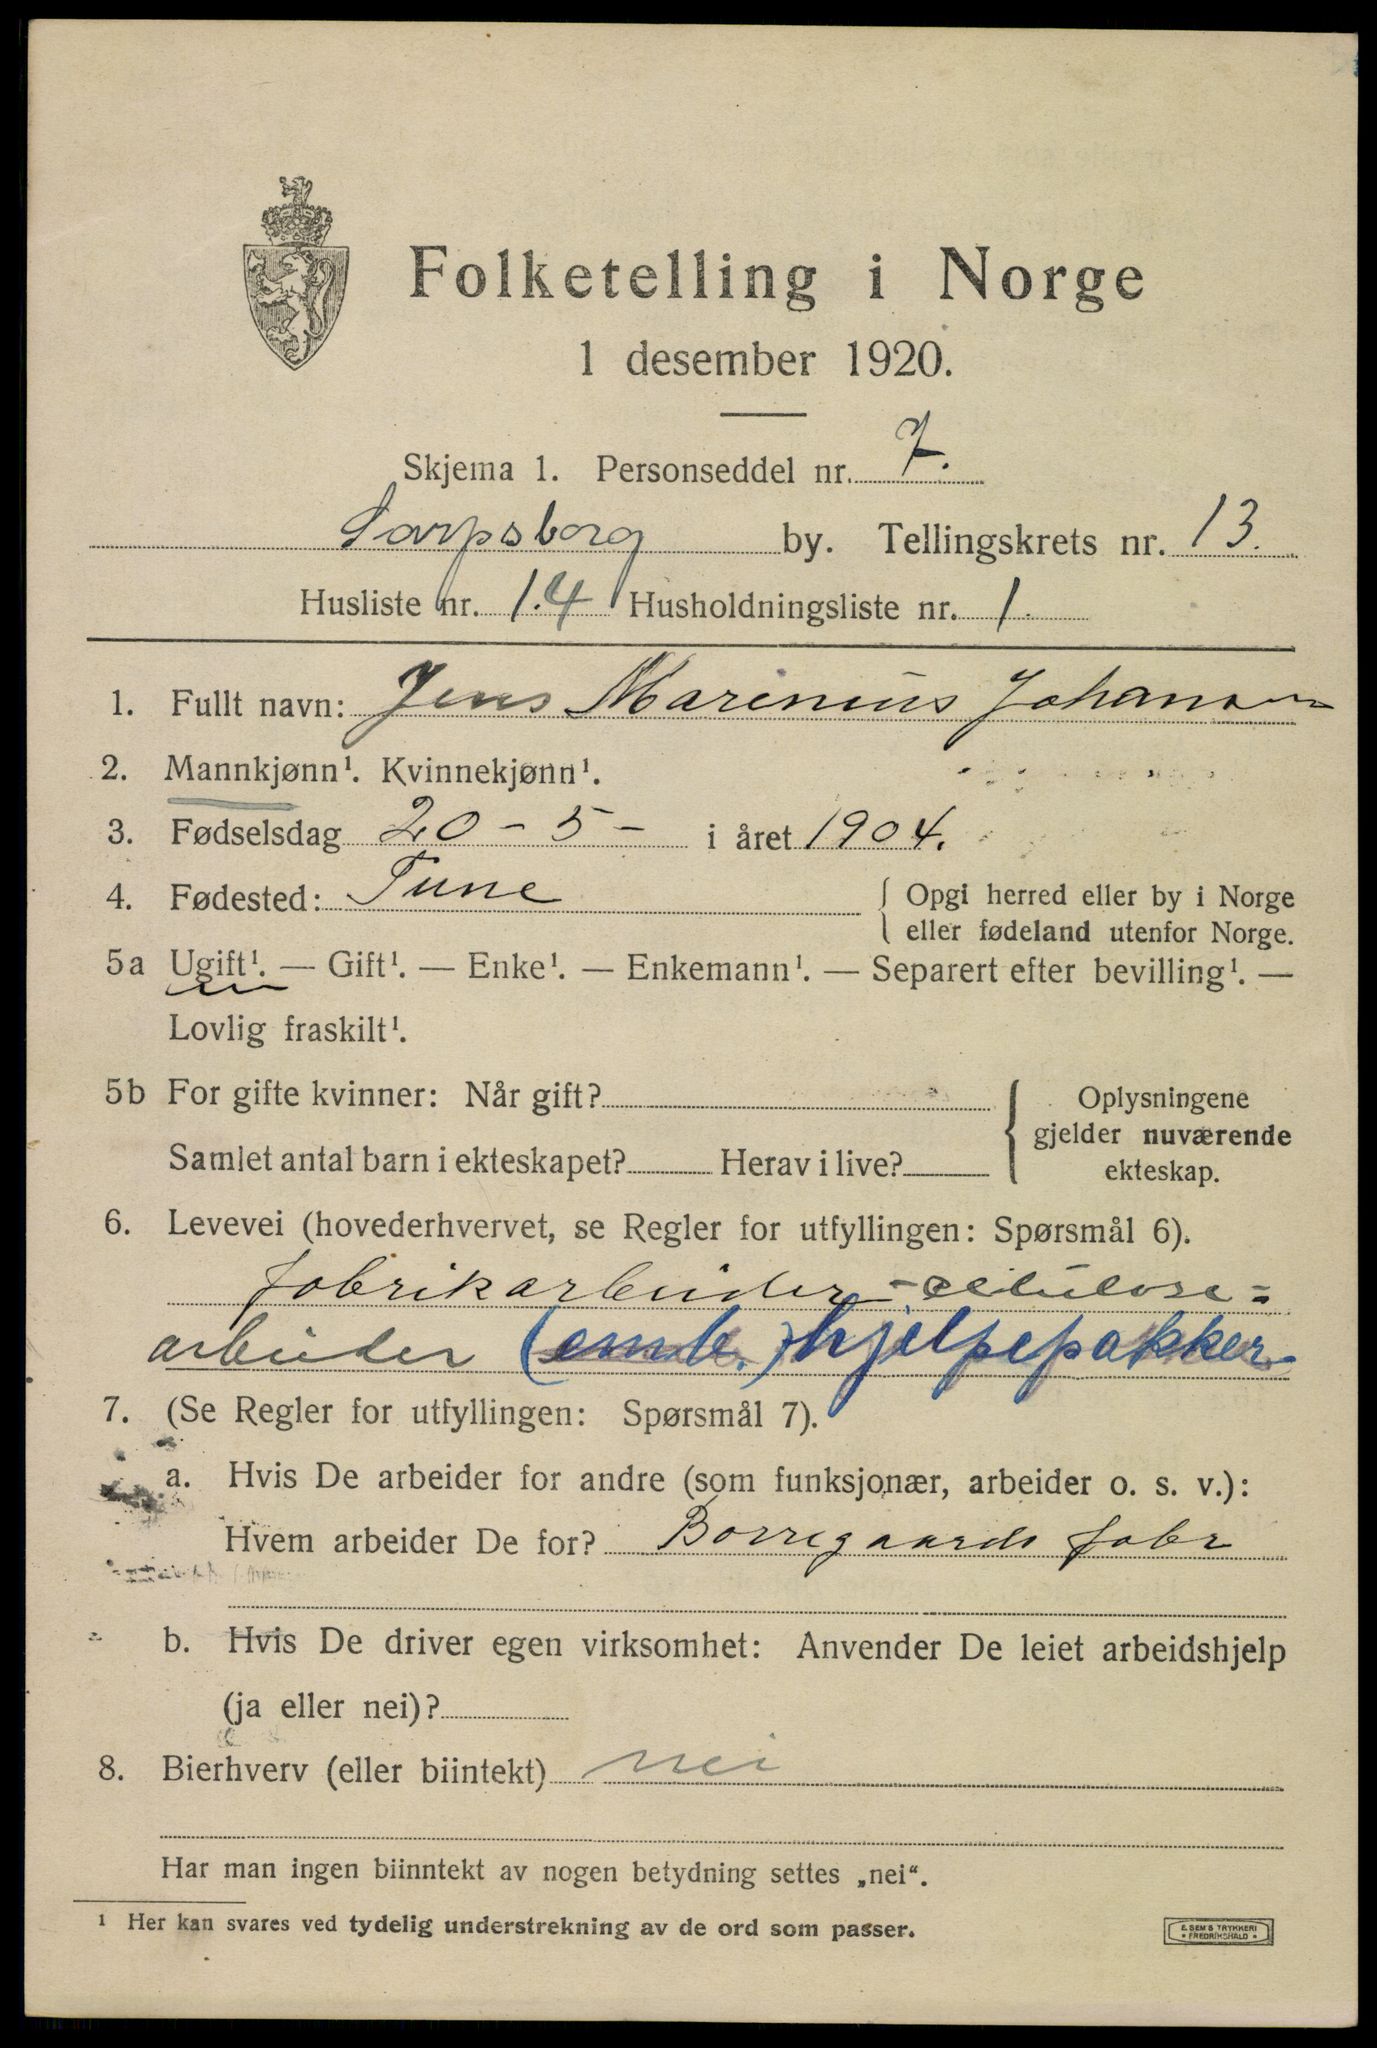 Folketelling i Norge
1 desember 1920.
Skjema 1. Personseddel nr. 7.
Sarpsborg by. Tellingskrets nr. 13.
Husliste nr. 14 Husholdningsliste nr. 1.
1. Fullt navn: Jens Marinius Johansen
2. Mannkjønn¹. Kvinnekjønn¹.
3. Fødselsdag 20-5- i året 1904.
4. Fødested: Tune { Opgi herred eller by i Norge
eller fødeland utenfor Norge.
5a Ugift¹. — Gift¹. — Enke¹. — Enkemann¹. — Separert efter bevilling¹. —
Lovlig fraskilt¹.
5b For gifte kvinner: Når gift? { Oplysningene
gjelder nuværende
Samlet antal barn i ekteskapet? Herav i live?
ekteskap.
6. Levevei (hovederhvervet, se Regler for utfyllingen: Spørsmål 6).
fabrikarbeider - celulose=
arbeider (emb.) hjelpepakker
7. (Se Regler for utfyllingen: Spørsmål 7).
a. Hvis De arbeider for andre (som funksjonær, arbeider o. s. v.):
Hvem arbeider De for? Borregaards fabr
b. Hvis De driver egen virksomhet: Anvender De leiet arbeidshjelp
(ja eller nei)?
8. Bierhverv (eller biintekt) nei
Har man ingen biinntekt av nogen betydning settes „nei“.
¹ Her kan svares ved tydelig understrekning av de ord som passer.
E. SEM'S TRYKKERI
• FREDRIKSHALD •